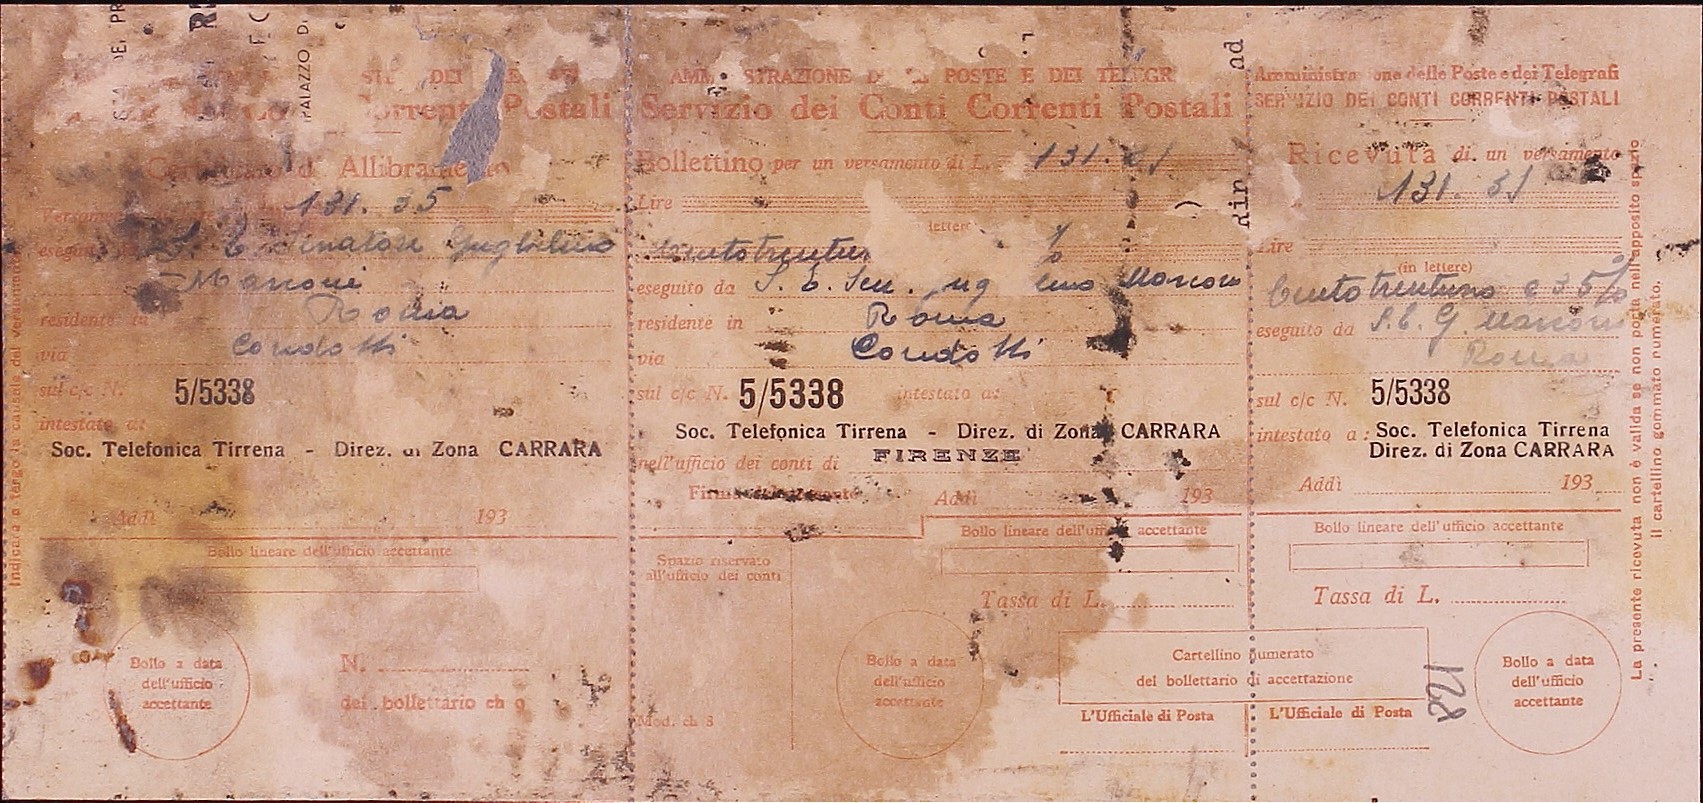 PALAZZO
AMM STRAZIONE D POSTE E DEI TELEGR
Correnti Postali
Servizio dei Conti Correnti Postali
Amministra one delle Poste e dei Telegrafi
SERVIZIO DEI CONTI CORRENTI POSTALI
din ad
Certificato di Allibramento
131. 35
eseguito da S. E. Senatore Guglielmo
Marconi
residente in Roma
via Condotti
sul c/c N. 5/5338
intestato a:
Soc. Telefonica Tirrena - Direz. di Zona CARRARA
Addì 193
Bollo lineare dell'ufficio accettante
Bollo a data
dell'ufficio
accettante
N.
del bollettario ch 9
Indicare a tergo la causale del versamento
Bollettino per un versamento di L. 131.
Lire
lettere
eseguito da S. E. Sen. ug lmo Marconi
residente in Roma
via Condotti
sul c/c N. 5/5338 intestato a:
Soc. Telefonica Tirrena - Direz. di Zona CARRARA
nell'ufficio dei conti di FIRENZE
Firma del versante
Addì 193
Bollo lineare dell'ufficio accettante
Spazio riservato
all'ufficio dei conti
Tassa di L.
Bollo a data
dell'ufficio
accettante
Mod. ch 8
Cartellino numerato
del bollettario di accettazione
L'Ufficiale di Posta
Ricevuta di un versamento
131.
Lire
(in lettere)
Centotrentuno e 35%
eseguito da S. E. G. Marconi
Roma
sul c/c N. 5/5338
intestato a: Soc. Telefonica Tirrena
Direz. di Zona CARRARA
Addì 193
Bollo lineare dell'ufficio accettante
Tassa di L.
L'Ufficiale di Posta
128
Bollo a data
dell'ufficio
accettante
La presente ricevuta non è valida se non porta nell'apposito spazio
il cartellino gommato numerato.